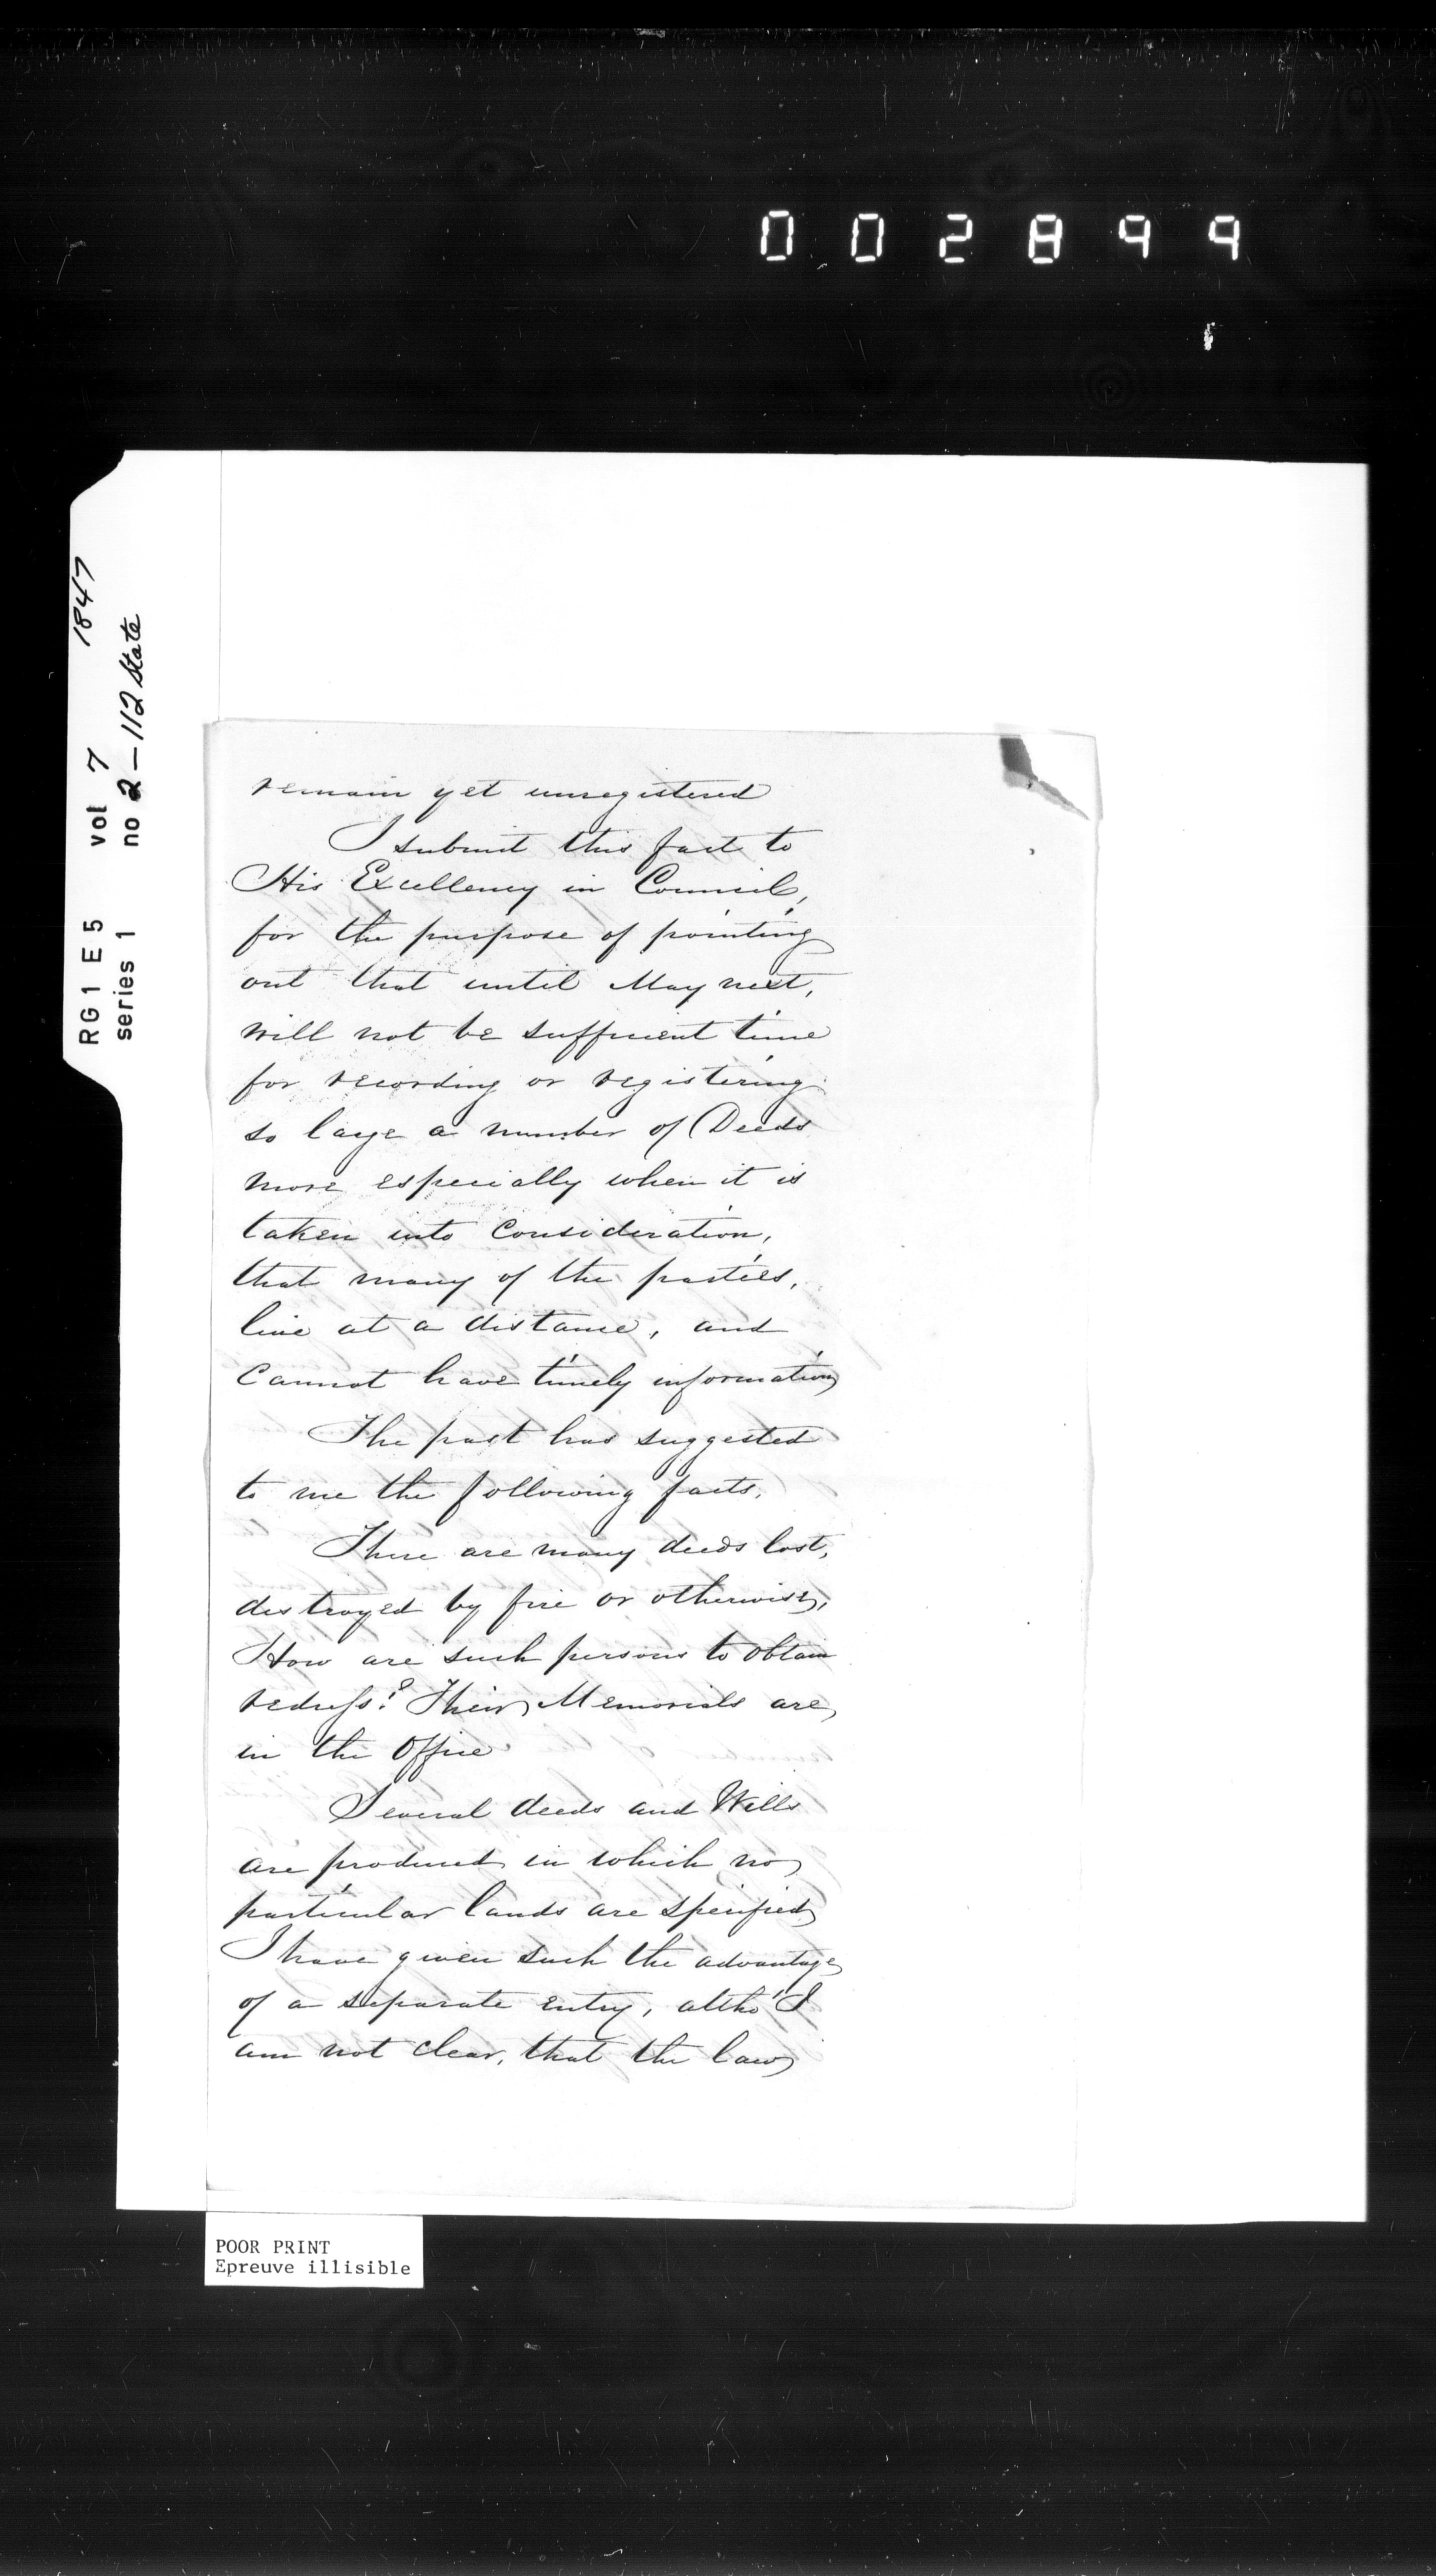 002899
RG1 E5 vol 7 1847
series 1 no 2-112 State
remain yet unregistered
I submit this fact to
His Excellency in Council,
for the purpose of pointing
out that until May next,
will not be sufficient time
for recording or registering
so large a number of Deeds
more especially when it is
taken into consideration,
that many of the parties,
live at a distance, and
Cannot have timely information
The past has suggested
to me the following facts,
There are many deeds lost,
destroyed by fire or otherwise,
How are such persons to obtain
redress? Their Memorials are
in the Office
Several deeds and Wills
are produced in which no
particular lands are specified
I have given such the advantage
of a separate entry, altho' I
am not clear, that the law
POOR PRINT
Epreuve illisible